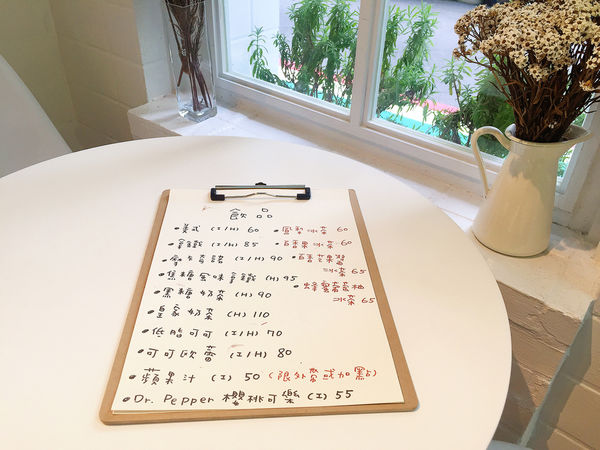 飲品
•美式 (I/H) 60
•拿鐵 (I/H) 85
(I/H) 90
•焦糖風味拿鐵 (I/H) 95
•黑糖奶茶 (H) 90
•皇家奶茶 (H) 110
•低脂可可 (I/H) 70
•可可歐蕾 (I/H) 80
•蘋果汁 (I) 50 (限外帶或加點)
•Dr. Pepper 櫻桃可樂 (I) 55
•鳳梨冰茶 60
•百香果冰茶 60
冰茶 65
•蜂蜜葡萄柚
冰茶 65